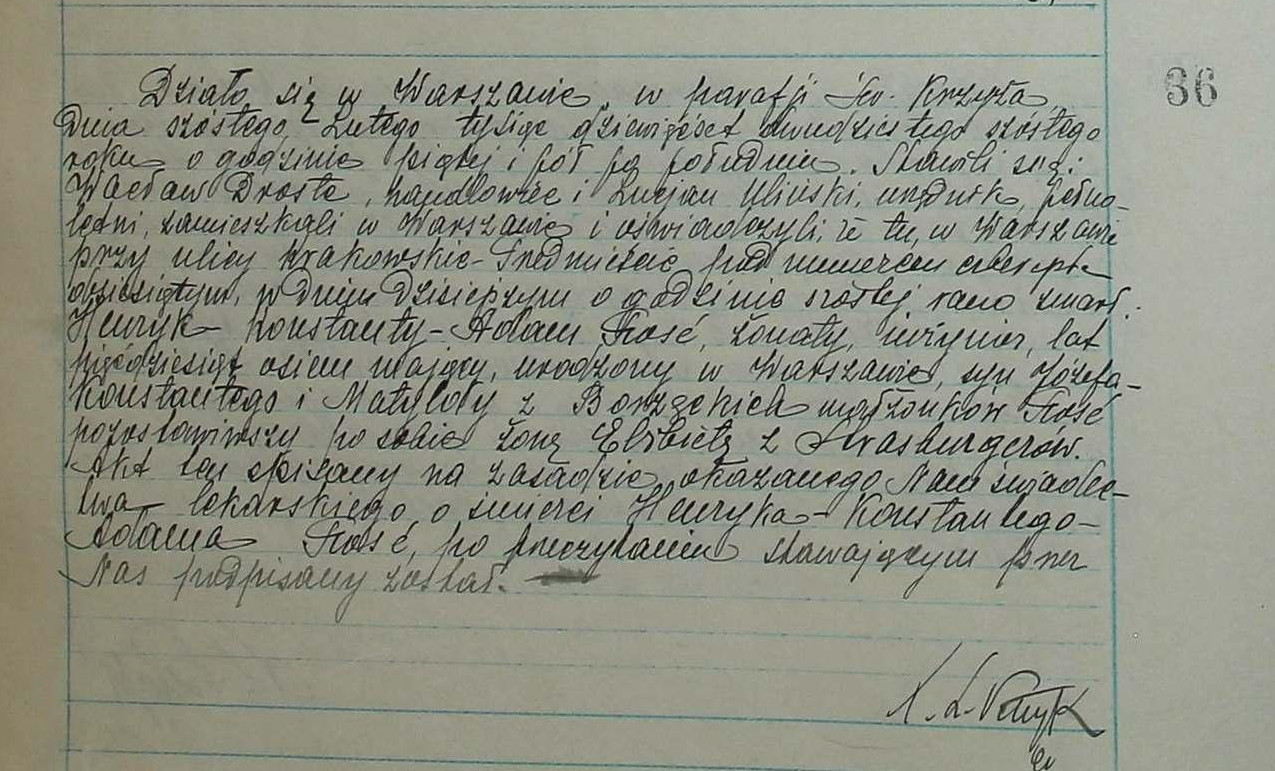 36
Działo się w Warszawie, w parafji Św. Krzyża,
Dnia szóstego Lutego tysiąc dziewięćset dwudziestego szóstego
roku o godzinie piątej i pół po południu. Stawili się:
Wacław Droste, handlowiec i Lucjan Uliński, urzędnik, pełno-
letni, zamieszkali w Warszawie i oświadczyli, że tu, w Warszawie
przy ulicy Krakowskie-Przedmieście pod numerem
dziesiątym, w dniu Dzisiejszym o godzinie szóstej rano zmarł
Henryk Konstanty-Adam żonaty, inżynier, lat
pięćdziesiąt osiem mający, urodzony w Warszawie, syn Józefa-
Konstantego i Matyldy z małżonków
pozostawiwszy po sobie żonę Elżbietę z Strasburgerów.
Akt ten spisany na zasadzie okazanego Nam świadec-
twa lekarskiego o śmierci Henryka-Konstantego-
Adama po przeczytaniu stawającym przez
Nas podpisany został.